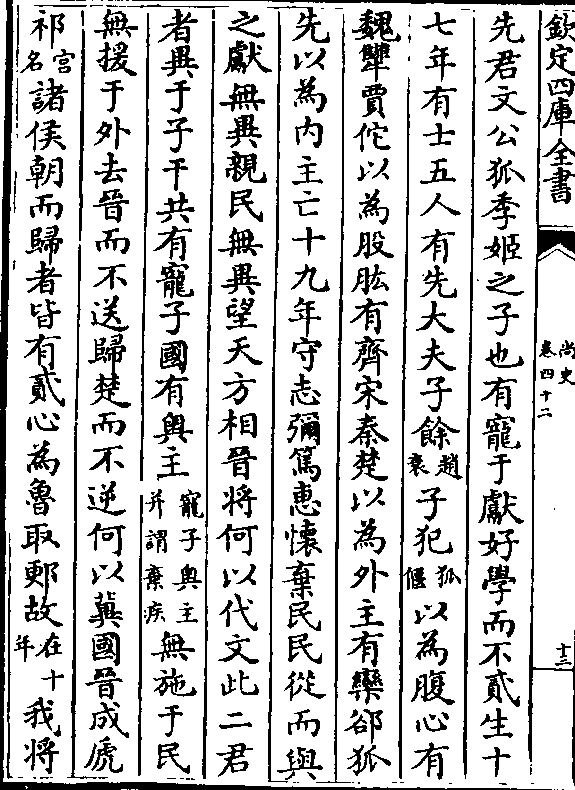 欽定四庫全書
尚史
卷四十二
十三
先君文公狐季姬之子也有寵于獻好學而不貳生十
七年有士五人有先大夫子餘趙衰子犯狐偃以為腹心有
魏犨賈佗以為股肱有齊宋秦楚以為外主有欒郤狐
先以為内主亡十九年守志彌篤惠懷棄民民從而與
之獻無異親民無異望天方相晉將何以代文此二君
者異于子干共有寵子國有奥主寵子奥主并謂棄疾無施于民
無援于外去晉而不送歸楚而不逆何以冀國晉成虒
祁宮名諸侯朝而歸者皆有貳心為魯取郠故在十年我將